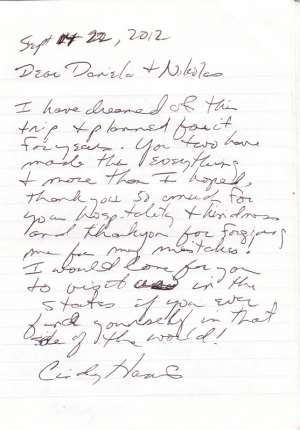 Sept 22, 2012
Dear Daniela + Nikolas
I have dreamed of this
trip + planned for it
for years. You two have
made this everything
+ more than I hoped,
thank you so much for
your hospitality + kindness
and thank you for forgiving
me for my mistakes!
I would love for you
to visit in the
states if you ever
find yourself in that
side of the world!
Cindy